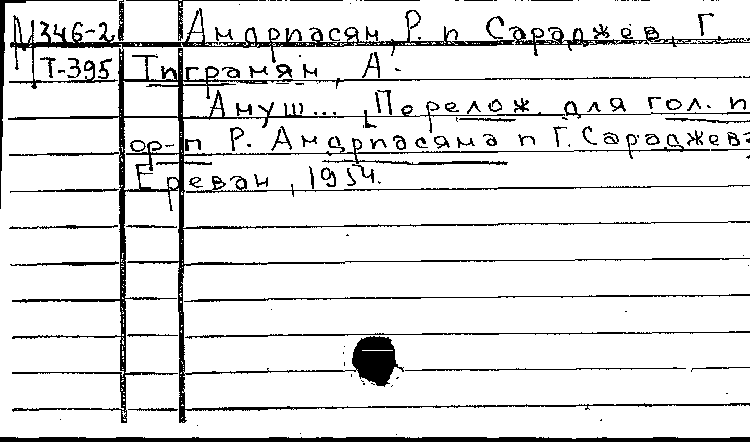 М 346-2 Андриасян, Р. и Сараджев, Г.
Т-395 Тигранян, А.
Ануш... [Перелож. для гол. и
ф-п Р. Андриасяна и Г. Сараджева
Ереван, 1954.